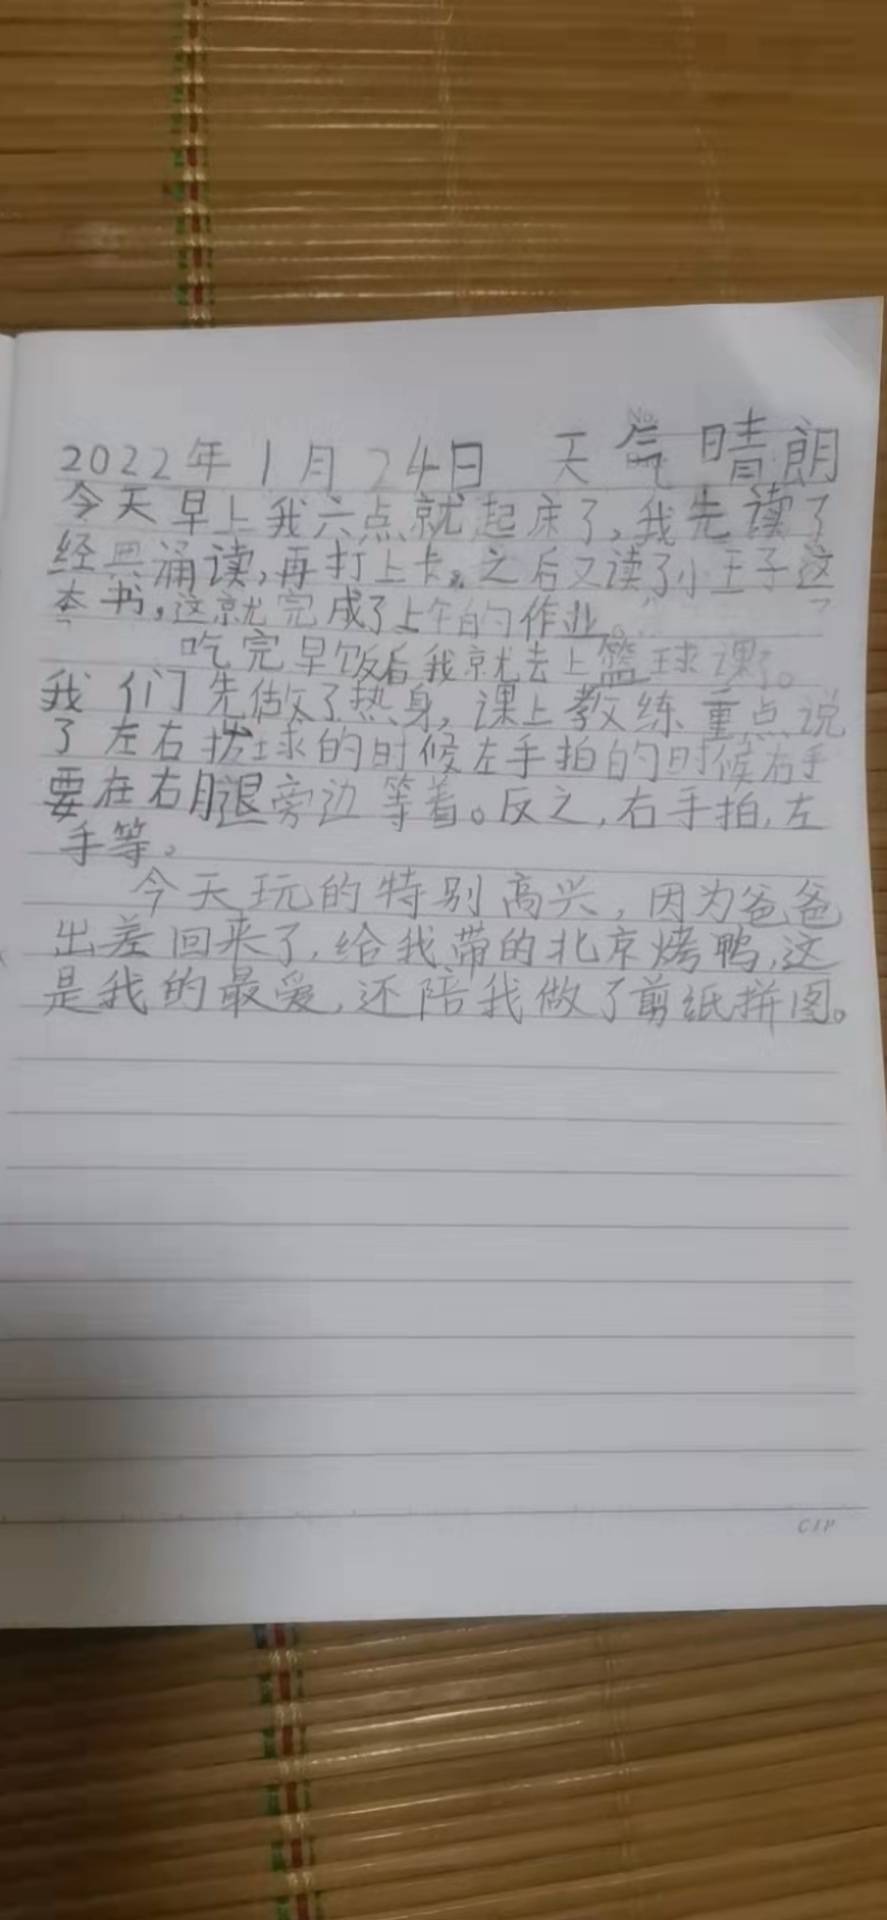 No.
2022年1月24日 天气晴朗
今天早上我六点就起床了,我先读了
经典诵读,再打上卡。之后又读了小王子这
本书,这就完成了上午的作业。
吃完早饭后我就去上篮球课了。
我们先做了热身,课上教练重点说
了左右拨球的时候左手拍的时候右手
要在右腿旁边等着。反之,右手拍,左
手等。
今天玩的特别高兴,因为爸爸
出差回来了,给我带的北京烤鸭,这
是我的最爱,还陪我做了剪纸拼图。
CIP